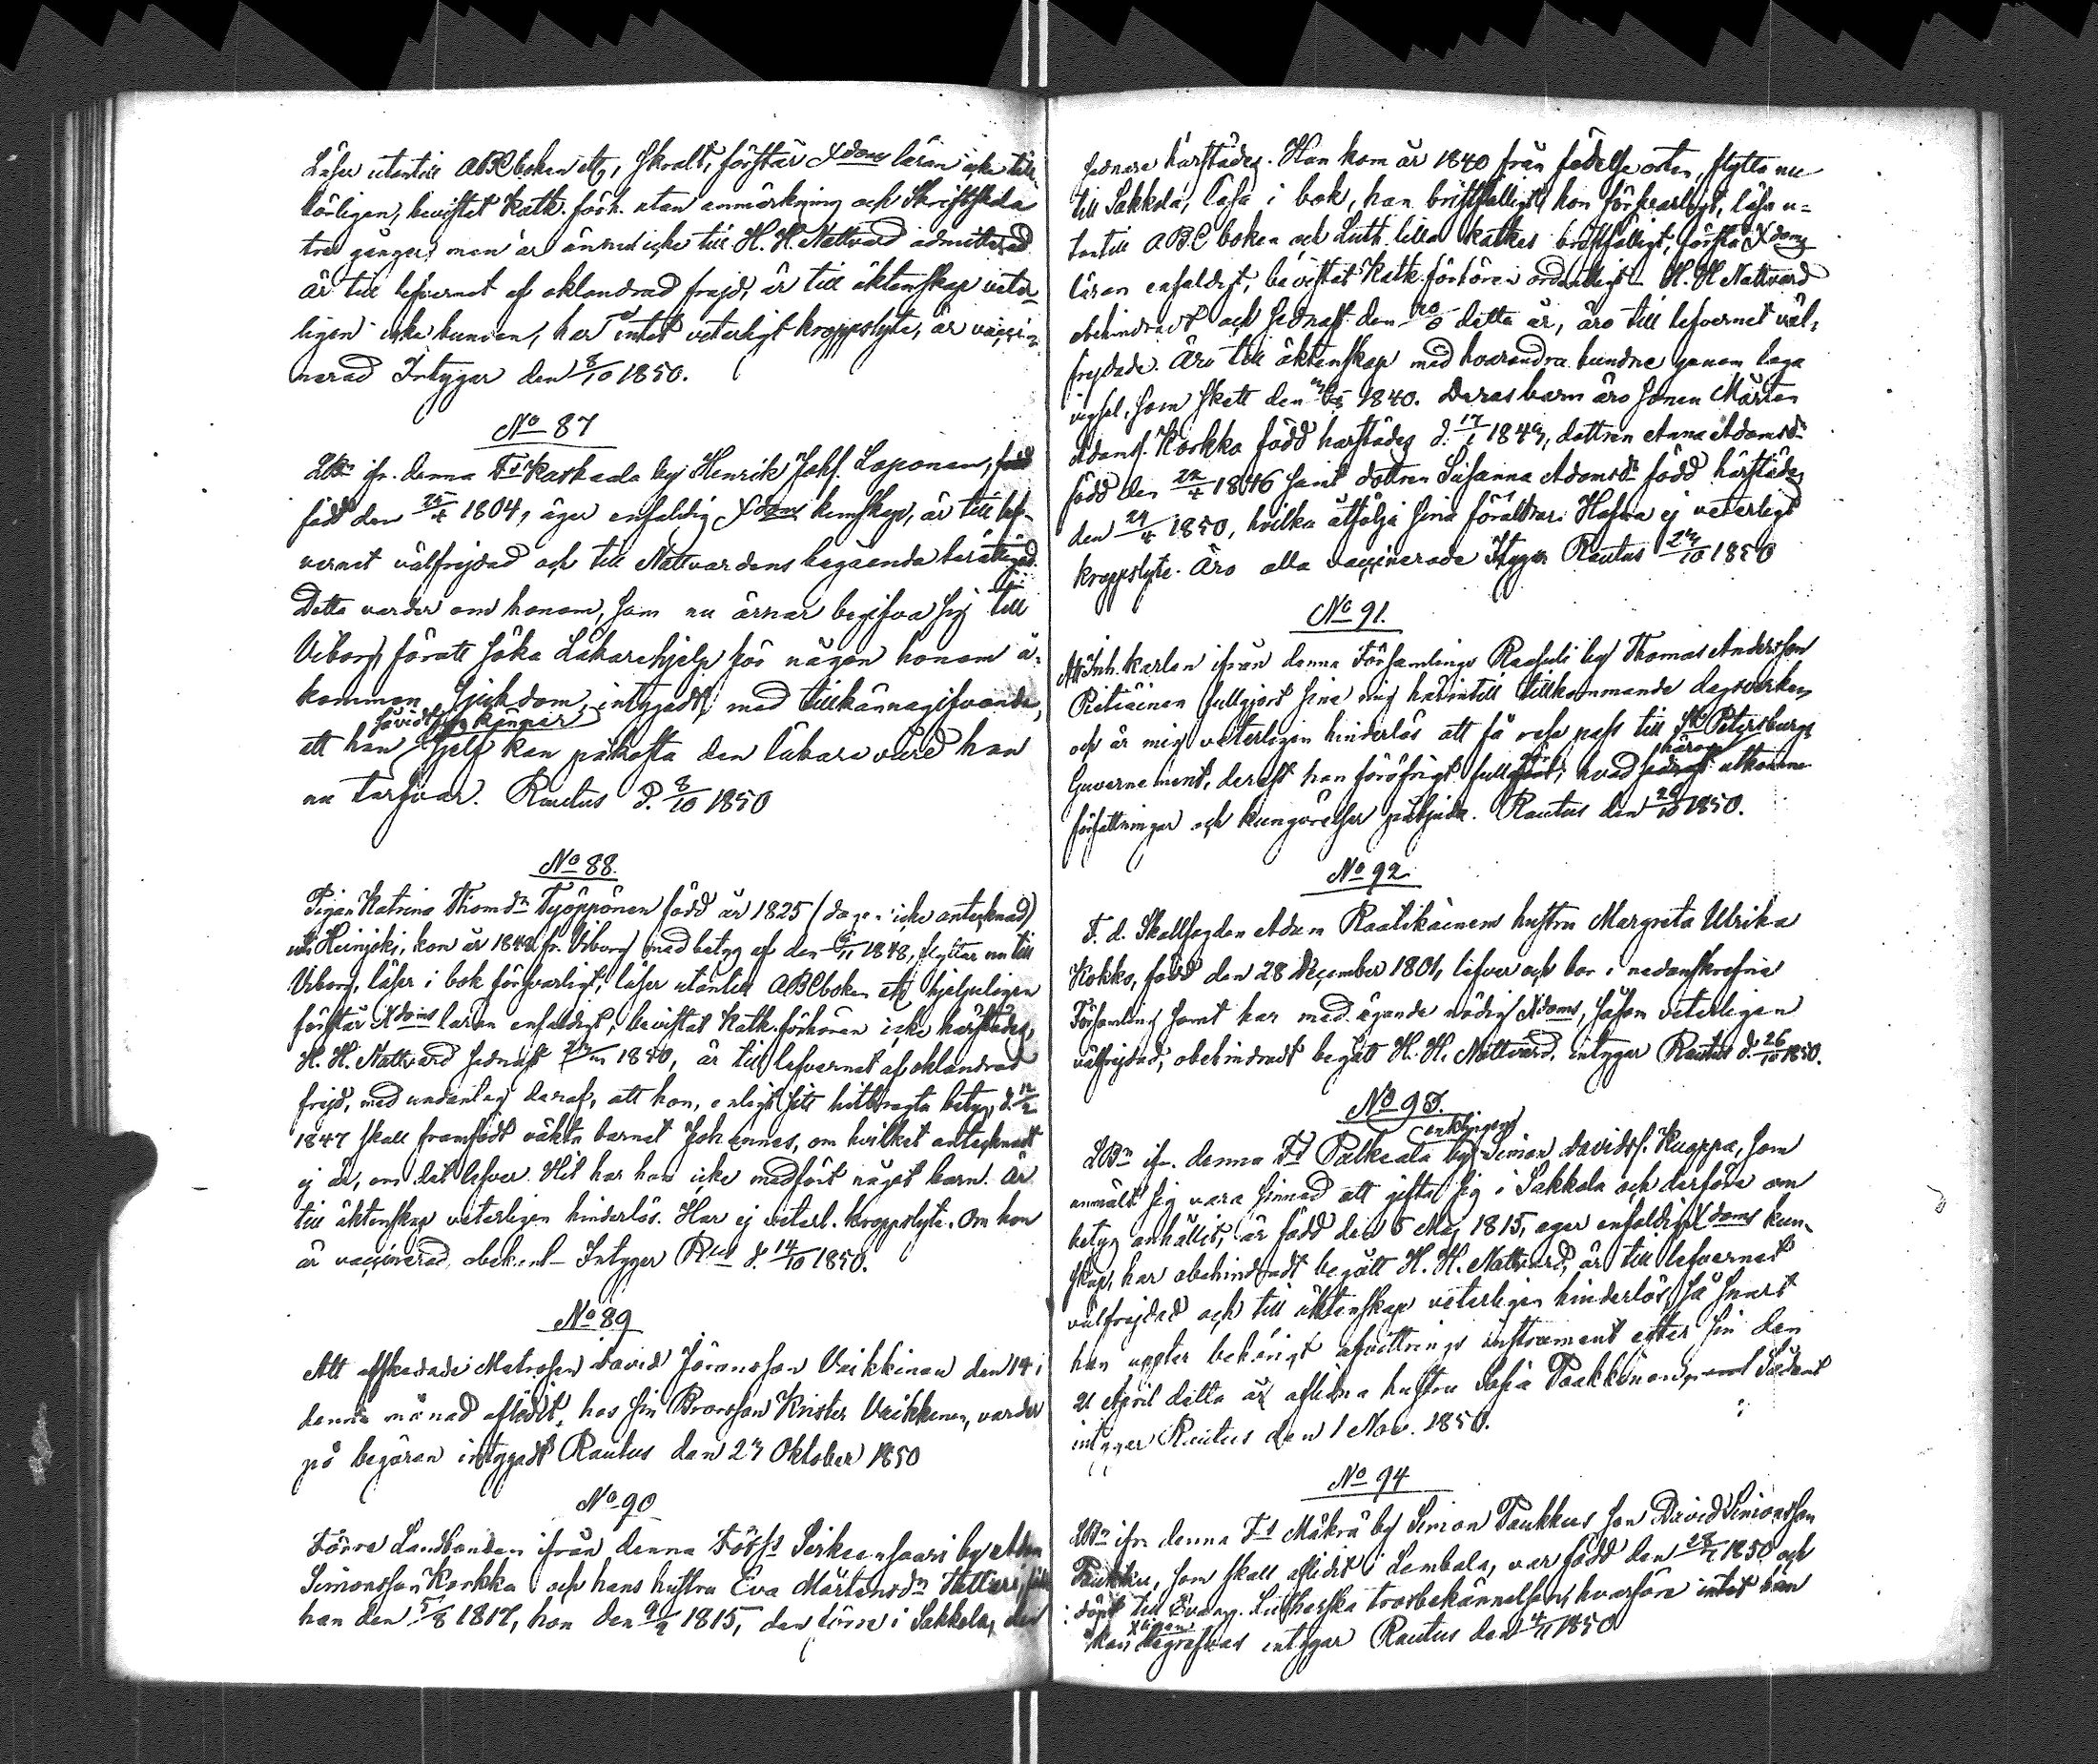 Läser utantill ABC boken etc, skralt, förstår Xdoms läran icke till-
börligen, bevistat Kath. förh. utan anmärkning och Skriftskola
tre gånger, men är ännu icke till H. H. Nattvard admitterad
Är till lefvernet af oklandrad frejd, är till äktenskap veter-
ligen icke bunden, har intet veterligt kroppslyte, är vaccin-
nerad Intygar den 8/10 1850.
No 87
ifr. denna Fs Kaskaala by Henrik Johs. Loponen,
född den 25/4 1804, äger enfaldig Xdoms kunskap, är till lef-
vernet välfrejdad och till Nattvardens begående berättigad.
Detta varder om honom, som nu ärnar begifva sig till
Viborg, föratt söka Läkarehjelp för någon honom å-
kommen sjukdom, intygadt, med tillkännagifvande,
såvidt jag känner
att han sjelf kan påkosta den läkare vård han
nu tarfvar. Rautus d. 8/10 1850
No 88.
Pigan Katrina Thomdr Työppönen född år 1825 (dagen icke antecknad)
uti Heinjoki, kom år 1848 fr. Viborg med betyg af den 6/11 1848, flyttar nu till
Viborg, läser i bok försvarligt, läser utantill ABC boken etc hjelpeligen
förstår Xdoms läran enfaldigt, bevistat Kath. förhören icke härstädes,
H. H. Nattvard sednast 1850, är till lefvernet af oklandrad
frejd, med undantag deraf, att hon, enligt sitt hitbragta betyg, d. 12/2
1847 skall framfödt oäkta barnet Johannes, om hvilket antecknadt
ej är, om det lefver. Hit har hon icke medfört något barn. Är
till äktenskap veterligen hinderlös. Har ej veterl. kroppslyte. Om hon
är vaccinerad, obekant. Intygar d. 14/10 1850.
No 89
Att afskedade Matrosen David Jöransson Veikkinen den 14 i
denna månad aflidit, hos sin Brorsson Krister Veikkinen, varder
på begäran intygadt Rautus den 23 Oktober 1850
No 90
Förre Landbonden ifrån denna Förss Sirkiensaari by
Simonsson Korkka och hans hustru Eva Mårtensdr
han den 5/8 1817, hon den 9/2 1815, den förre i Sakkola, den
sednare härstädes. Han kom år 1840 från födelse orten, flytta nu
till Sakkola, läsa i bok, han bristfälligt, hon försvarligt, läsa u-
tantill ABC boken och Luth. lilla katkes bristfälligt, förstå Xdoms
läran enfaldigt, bevistat Kath. förhören ordentligt H. H. Nattvard
obehindradt och sednast den detta år, äro till lefvernet väl-
frejdade. Äro till äktenskap med hvarandra bundne genom laga
vigsel, som skett den 1840. Deras barn äro sonen Mårten
Adams. Korkka född härstädes d. 17/1 1843, dottren Anna Adamsdr
född den 22/4 1846 samt dottren Susanna Adamsdr född härstädes
den 29/4 1850, hvilka åtfölja sina föräldrar. Hafva ej veterligt
kroppslyte. Äro alla vaccinerade Intygar Rautus 23/10 1850
No 91.
Att Inh. karlen ifrån denna Församlings Raasuli by Thomas Andersson
Pietiäinen fullgjort sina mig härintill tillkommande dagsverken
och är mig veterligen hinderlös att få resa pass till St Petersburgs
härom
Guvernement, derest han föröfrigt fullgör, hvad utkomne
författningar och kungörelser påbjuda. Rautus den 26/10 1850.
No 92.
F. d. Skallfogden Adam Raatikainens hustru Margreta Ulrika
Kokko, född den 28 December 1801, lefver och bor i nedanskrefne
Församling samt har med ägande nödig Xdoms, såsom veterligen
välfrejdad, obehindradt begått H. H. Nattvard, intygar Rautus d. 26/10 1850.
No 93.
enklingen
ifr. denna Fs Palkeala by Simon Davidss. Kuoppa, som
anmält sig vara sinnad att gifta sig i Sakkola och derföre om
betyg anhållit, är född den 5 Maj 1815, eger enfaldig Xdoms kun-
skap, har obehindradt begått H. H. Nattvard, är till lefvernet
välfrejdad och till äktenskap veterligen hinderlös, så snart
han uppter behörigt afvittrings instrument efter sin den
21 April detta år aflidna hustru Sofia Paakkönen,
intygar Rautus den 1 Nov. 1850.
No 94
ifr. denna Fs Mäkrä by Simon Paukkus son David Simonsson
Paukku, som skall aflidit i Lembala, var född den 1850 och
döpt till Evang. Lutherska trosbekännelsen, hvarföre intet han
kan begrafvas intygar Rautus den 4/11 1850